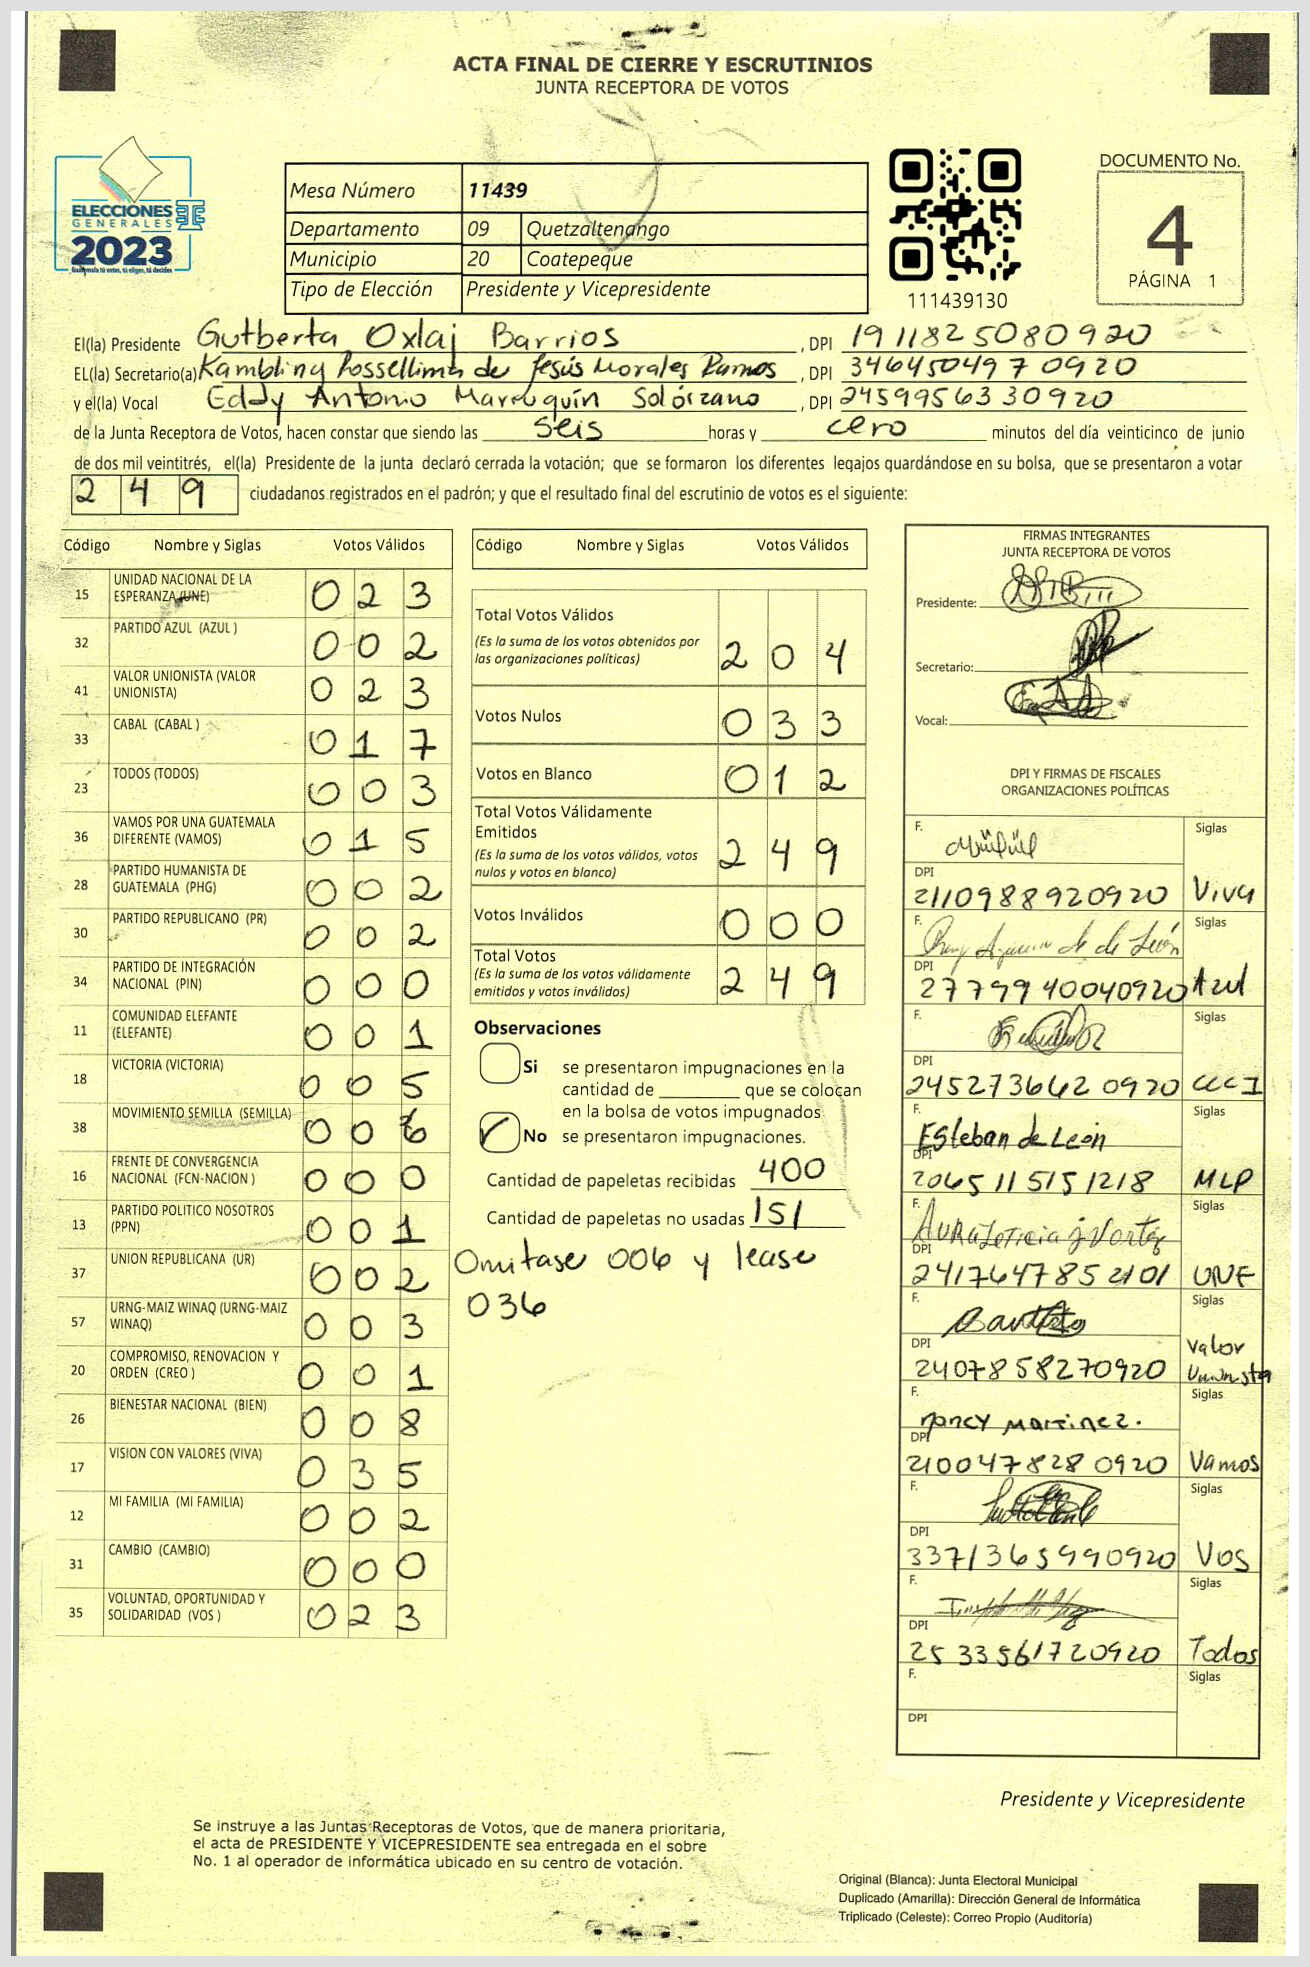 ACTA FINAL DE CIERRE Y ESCRUTINIOS
JUNTA RECEPTORA DE VOTOS
ELECCIONES
GENERALES
2023
Guatemala tú eres, tú eliges, tú decides
Mesa Número 11439
Departamento 09 Quetzaltenango
Municipio 20 Coatepeque
Tipo de Elección Presidente y Vicepresidente
111439130
DOCUMENTO No.
4
PÁGINA 1
El(la) Presidente Gutberta Oxlaj Barrios, DPI 1911825080920
EL(la) Secretario(a) Kambling Rossellima de Jesús Morales Ramos, DPI 3464504970920
y el(la) Vocal Eddy Antonio Marroquín Solórzano, DPI 2459956330920
de la Junta Receptora de Votos, hacen constar que siendo las seis horas y cero minutos del día veinticinco de junio
de dos mil veintitrés, el(la) Presidente de la junta declaró cerrada la votación; que se formaron los diferentes legajos guardándose en su bolsa, que se presentaron a votar
249 ciudadanos registrados en el padrón; y que el resultado final del escrutinio de votos es el siguiente:
Código Nombre y Siglas Votos Válidos
15 UNIDAD NACIONAL DE LA ESPERANZA (UNE) 023
32 PARTIDO AZUL (AZUL ) 002
41 VALOR UNIONISTA (VALOR UNIONISTA) 023
33 CABAL (CABAL ) 017
23 TODOS (TODOS) 003
36 VAMOS POR UNA GUATEMALA DIFERENTE (VAMOS) 015
28 PARTIDO HUMANISTA DE GUATEMALA (PHG) 002
30 PARTIDO REPUBLICANO (PR) 002
34 PARTIDO DE INTEGRACIÓN NACIONAL (PIN) 000
11 COMUNIDAD ELEFANTE (ELEFANTE) 001
18 VICTORIA (VICTORIA) 005
38 MOVIMIENTO SEMILLA (SEMILLA) 006
16 FRENTE DE CONVERGENCIA NACIONAL (FCN-NACION ) 000
13 PARTIDO POLITICO NOSOTROS (PPN) 001
37 UNION REPUBLICANA (UR) 002
57 URNG-MAIZ WINAQ (URNG-MAIZ WINAQ) 003
20 COMPROMISO, RENOVACION Y ORDEN (CREO ) 001
26 BIENESTAR NACIONAL (BIEN) 008
17 VISION CON VALORES (VIVA) 035
12 MI FAMILIA (MI FAMILIA) 002
31 CAMBIO (CAMBIO) 000
35 VOLUNTAD, OPORTUNIDAD Y SOLIDARIDAD (VOS ) 023
Código Nombre y Siglas Votos Válidos
Total Votos Válidos
(Es la suma de los votos obtenidos por las organizaciones políticas) 204
Votos Nulos 033
Votos en Blanco 012
Total Votos Válidamente Emitidos
(Es la suma de los votos válidos, votos nulos y votos en blanco) 249
Votos Inválidos 000
Total Votos
(Es la suma de los votos válidamente emitidos y votos inválidos) 249
Observaciones
Si se presentaron impugnaciones en la
cantidad de ________ que se colocan
en la bolsa de votos impugnados
No se presentaron impugnaciones.
Cantidad de papeletas recibidas 400
Cantidad de papeletas no usadas 151
Omitase 006 y lease
036
FIRMAS INTEGRANTES
JUNTA RECEPTORA DE VOTOS
Presidente:
Secretario:
Vocal:
DPI Y FIRMAS DE FISCALES
ORGANIZACIONES POLÍTICAS
F. Siglas
DPI
2110988920920 Viva
F. Siglas
DPI
2779940040920 Azul
F. Siglas
DPI
2452736620920
F. Siglas
Esteban de León
DPI
2065115151218 MLP
F. Siglas
DPI
2417647852101 UNE
F. Siglas
DPI
2407858270920 Valor Unionista
F. Siglas
Nancy Martinez.
DPI
2100478280920 Vamos
F. Siglas
DPI
3371365990920 Vos
F. Siglas
DPI
2533561720920 Todos
F. Siglas
DPI
Presidente y Vicepresidente
Se instruye a las Juntas Receptoras de Votos, que de manera prioritaria,
el acta de PRESIDENTE Y VICEPRESIDENTE sea entregada en el sobre
No. 1 al operador de informática ubicado en su centro de votación.
Original (Blanca): Junta Electoral Municipal
Duplicado (Amarilla): Dirección General de Informática
Triplicado (Celeste): Correo Propio (Auditoría)